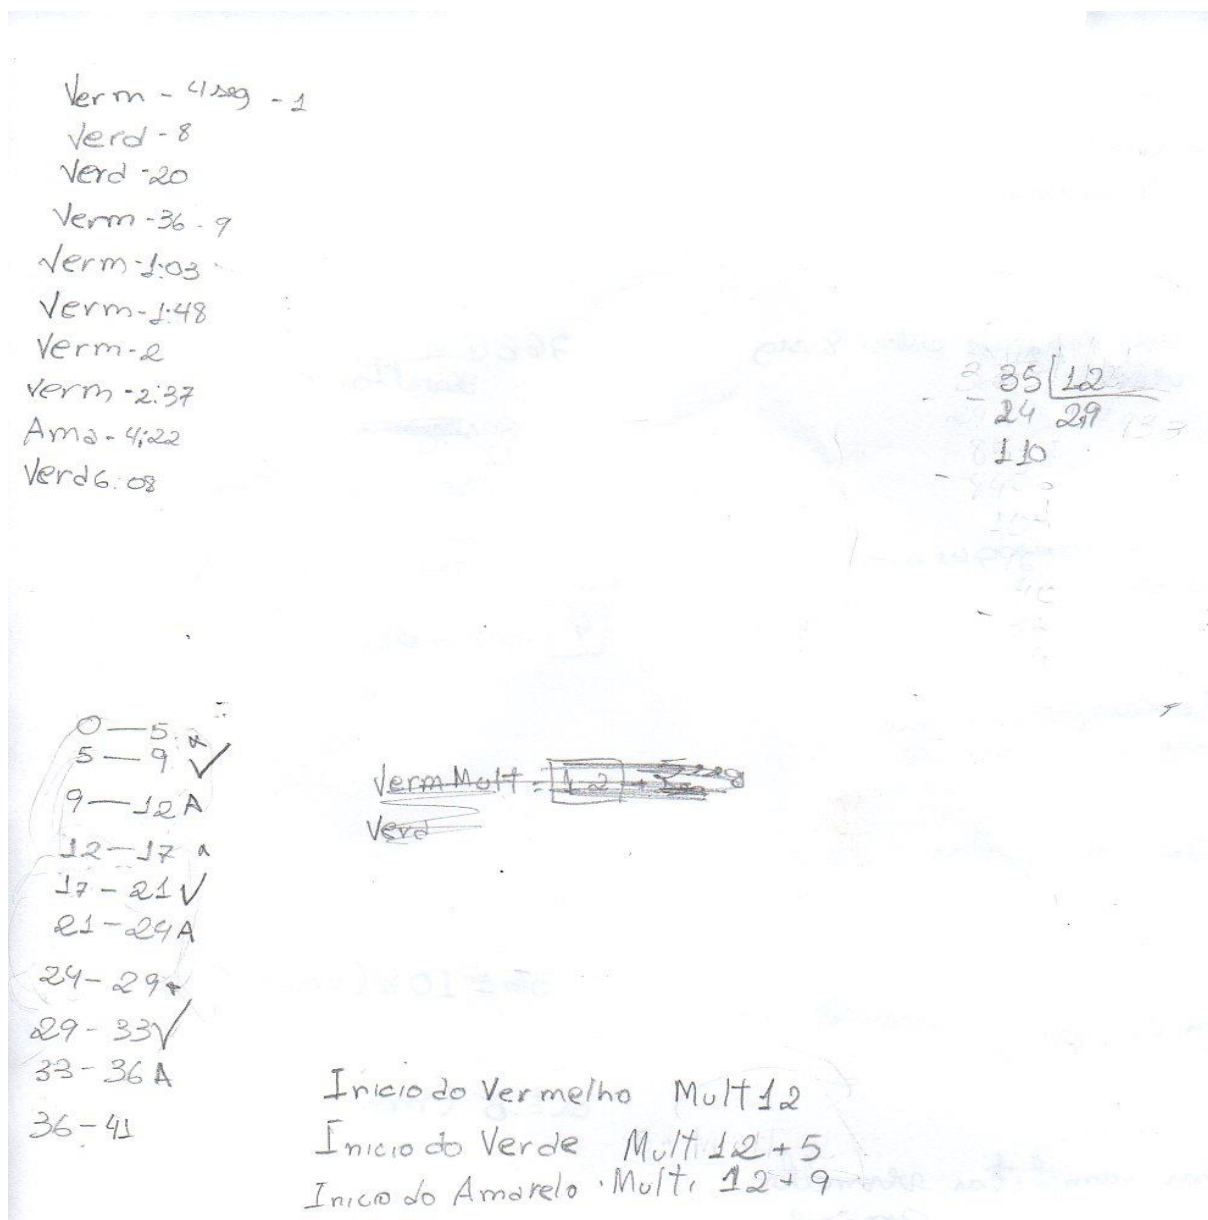 Verm - 4 seg - 1
Verd - 8
Verd - 20
Verm - 36 - 9
Verm - 1:03
Verm - 1:48
Verm - 2
Verm - 2:37
Ama - 4:22
Verd 6:08
35 12
24 2,9
110
0 — 5
5 — 9 ✓
9 — 12 A
12 — 17
17 - 21 ✓
21 - 24 A
24 - 29
29 - 33 ✓
33 - 36 A
36 - 41
Verm Mult = 12 +
Verd
Inicio do Vermelho Mult 12
Inicio do Verde Mult 12 + 5
Inicio do Amarelo . Mult. 12 + 9